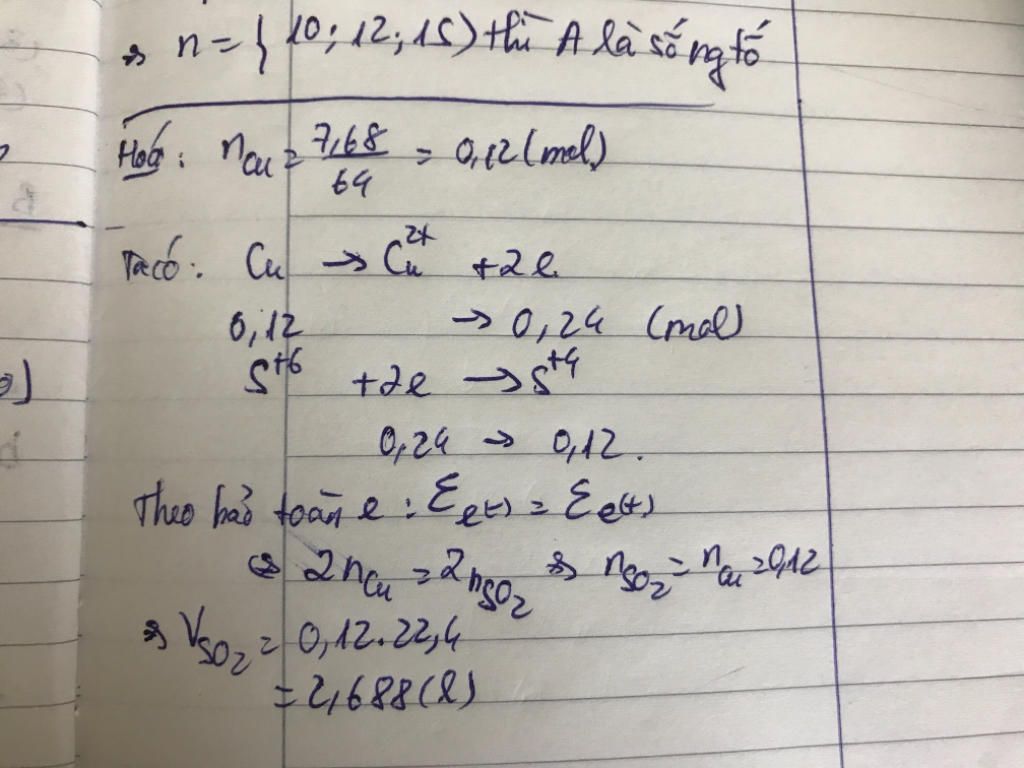 => n = { 10; 12; 15) thì A là số ng tố
Hoá: nCu = 7,68/64 = 0,12 (mol)
Ta có: Cu → Cu²⁺ +2e
0,12 → 0,24 (mol)
S⁺⁶ +2e → S⁺⁴
0,24 → 0,12.
Theo bảo toàn e : Σe(-) = Σe(+)
<=> 2nCu = 2nSO₂ => nSO₂ = nCu = 0,12
=> VSO₂ = 0,12.22,4
= 2,688 (l)